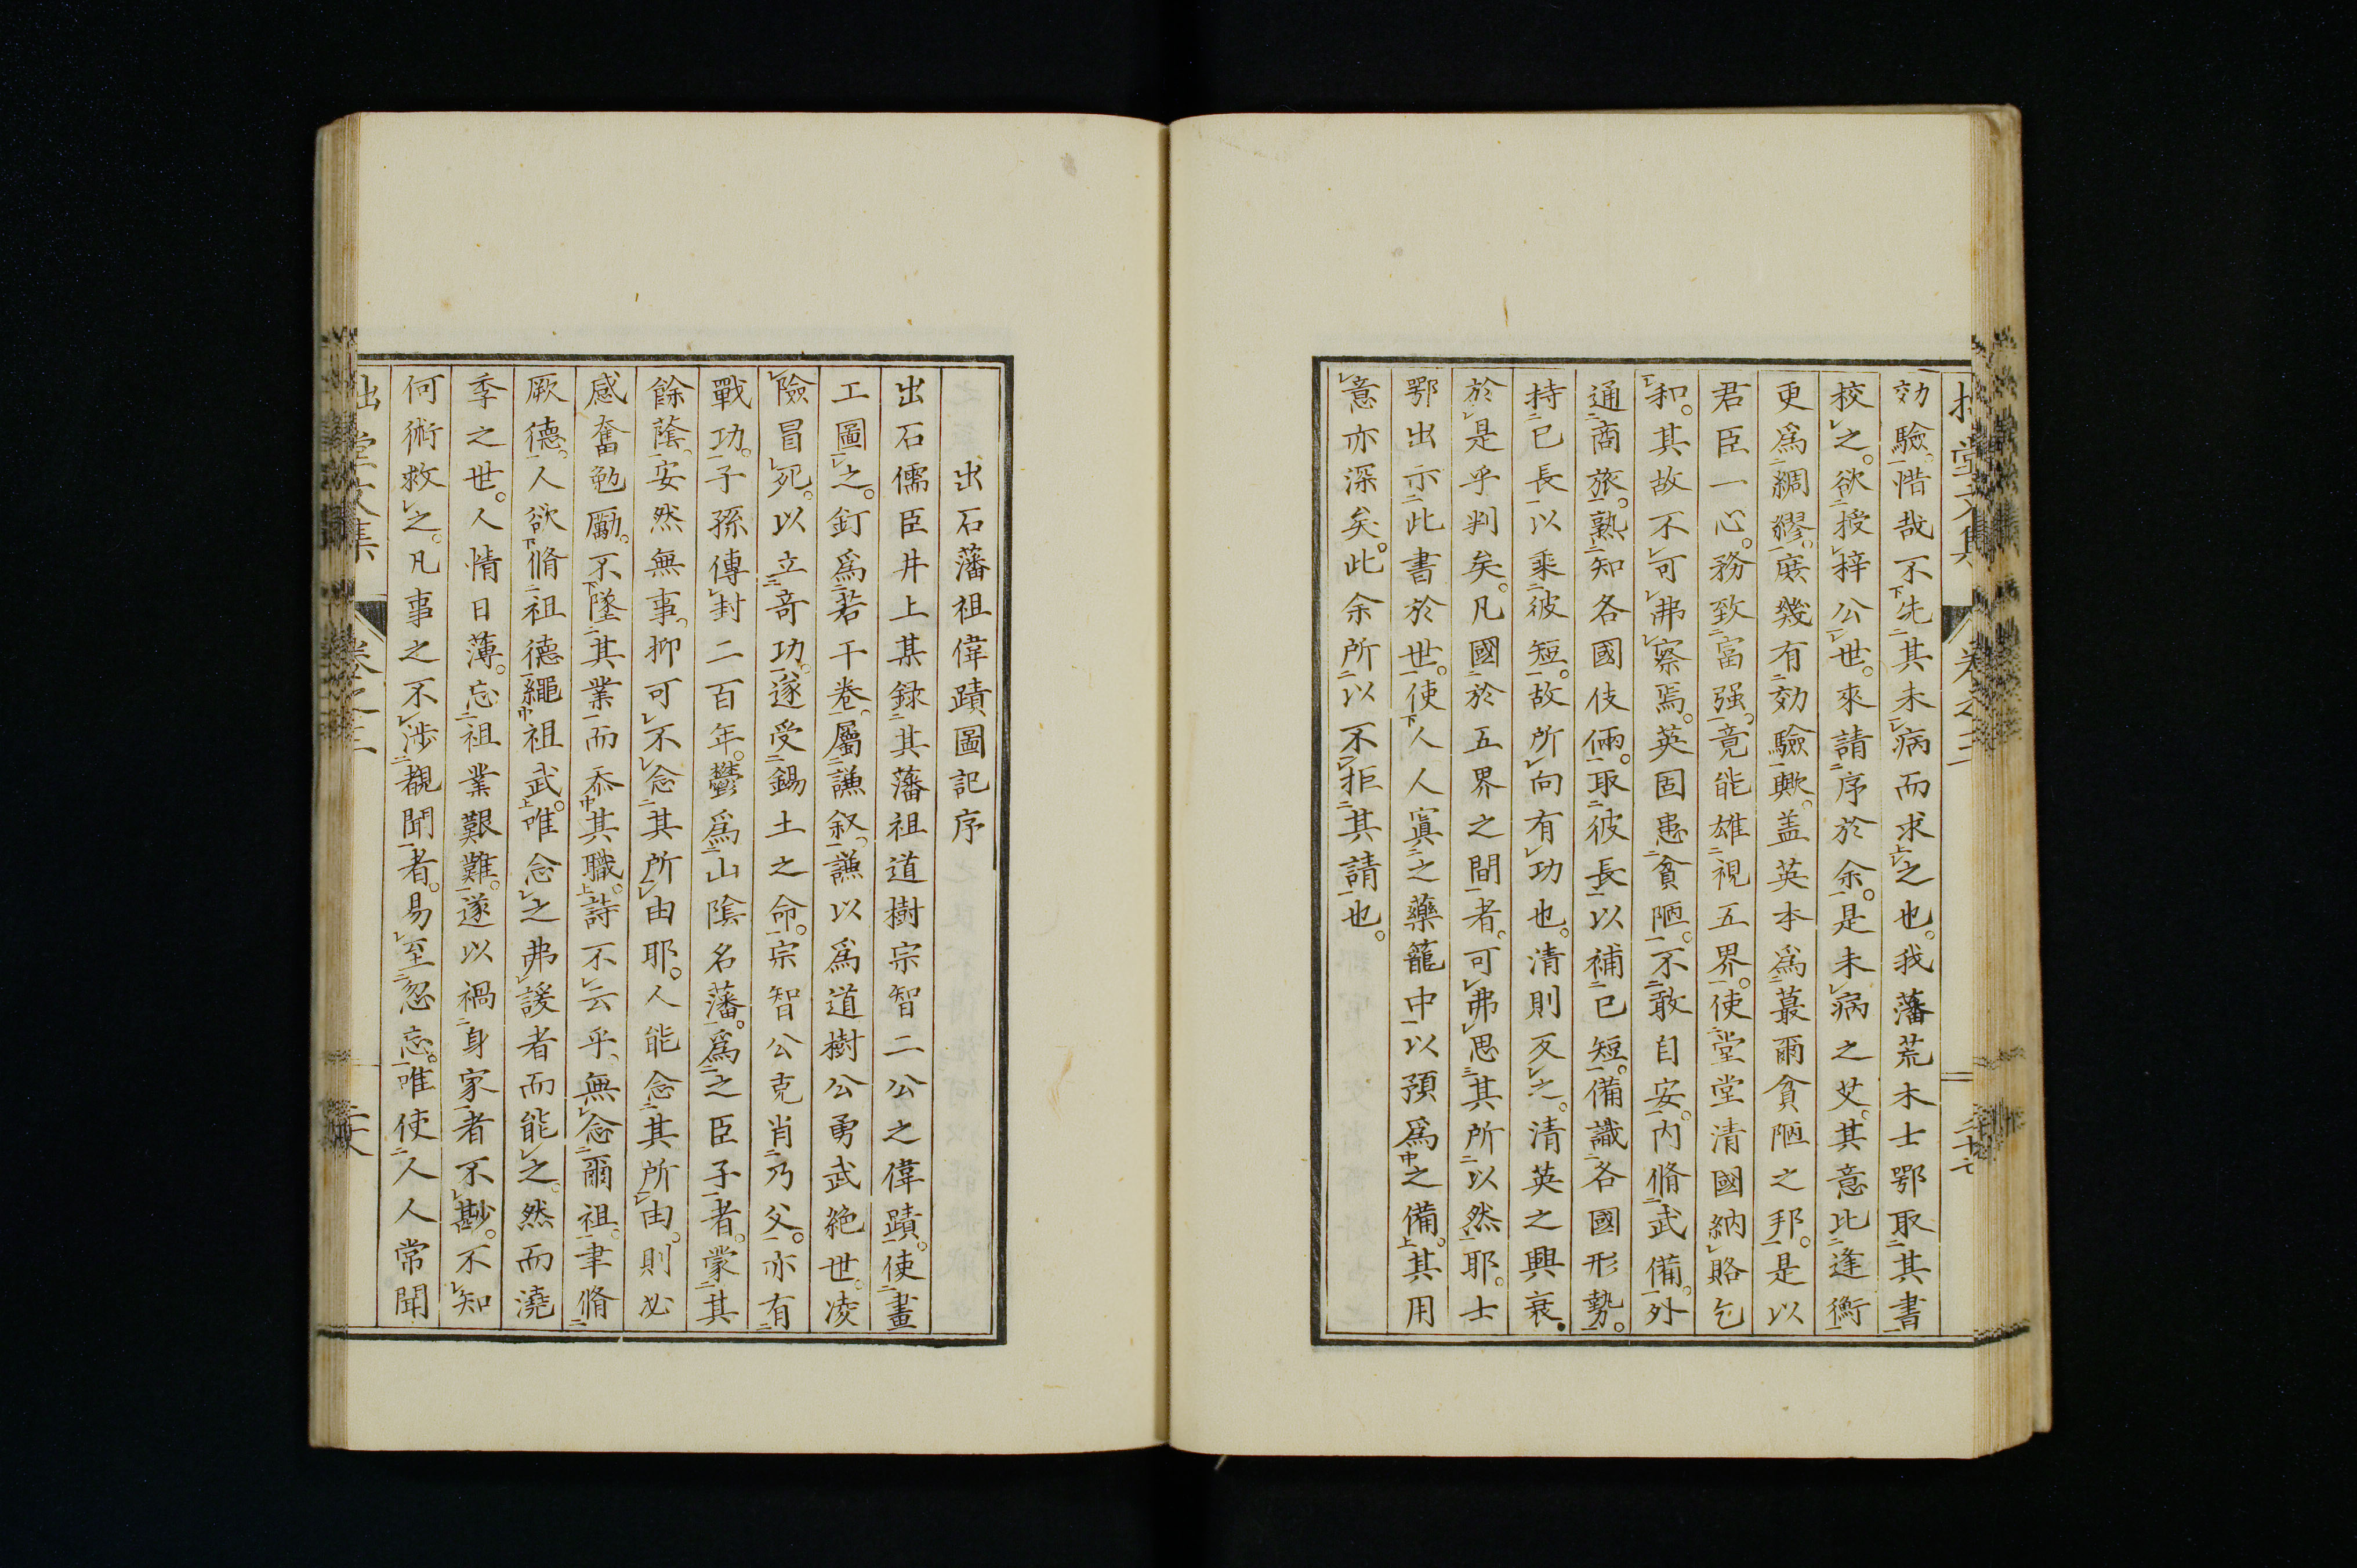 効驗惜哉不先其未病而求之也。我藩荒木士鄂取其書
校之。欲授梓公世。來請序於余。是未病之艾。其意比逢衡
更爲綢繆。庻幾有効驗歟。盖英本爲蕞爾貪陋之邦。是以
君臣一心。務致富强。竟能雄視五界。使堂堂清國納賂乞
和。其故不可弗察焉。英固患貪陋。不敢自安。内脩武備。外
通商旅。熟知各國伎倆。取彼長以補己短。備識各國形勢。
持己長以乘彼短。故所向有功也。清則反之。清英之興衰
於是乎判矣。凡國於五界之間者。可弗思其所以然耶。士
鄂出示此書於世。使人人寘之藥籠中以預爲之備。其用
意亦深矣。此余所以不拒其請也。
出石藩祖偉蹟圖記序
出石儒臣井上某録其藩祖道樹宗智二公之偉蹟。使畫
工圖之。釘爲若干卷。屬謙叙。謙以爲道樹公勇武絶世。凌
險冒死。以立竒功。遂受錫土之命。宗智公克肖乃父。亦有
戰功。子孫傳封二百年。欝爲山陰名藩。爲之臣子者。蒙其
餘蔭。安然無事。抑可不念其所由耶。人能念其所由。則必
感奮勉勵。不墜其業而忝其職。詩不云乎。無念爾祖。聿脩
厥德。人欲脩祖德繩祖武。唯念之弗諼者而能之。然而澆
季之世。人情日薄。忘祖業艱難。遂以禍身家者不尠。不知
何術救之。凡事之不涉覩聞者。易至忽忘。唯使人人常聞